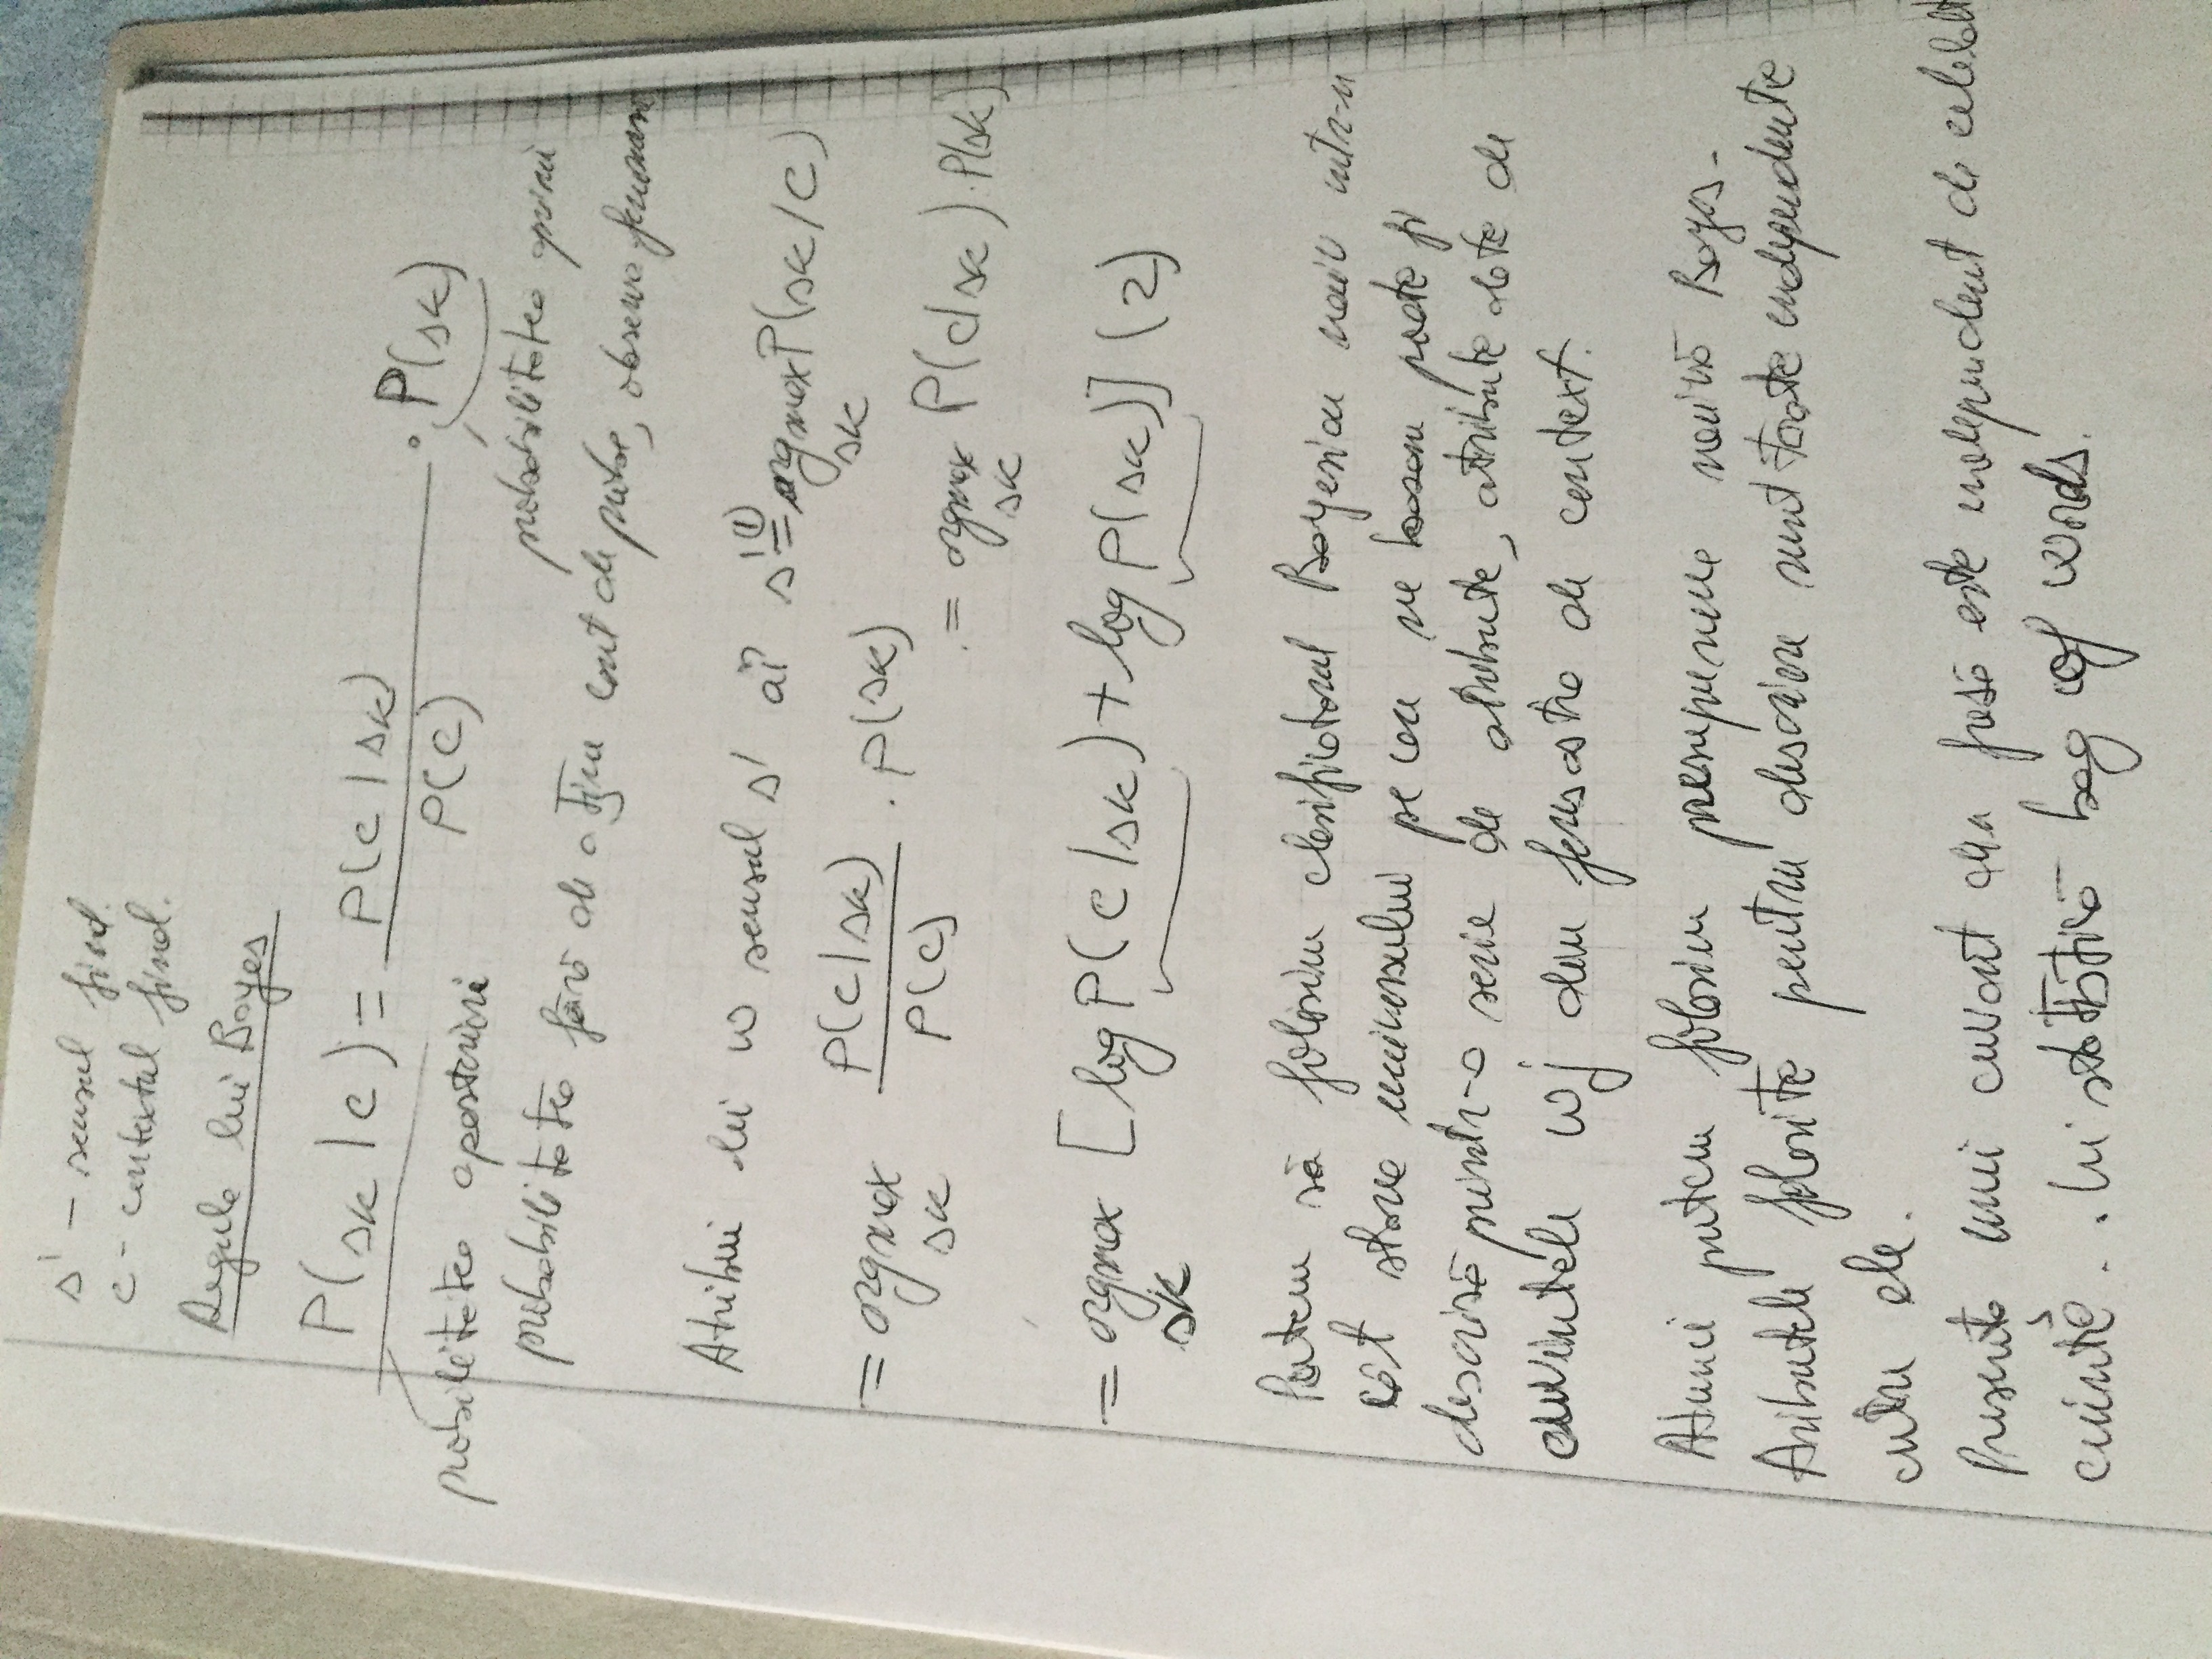 s' - sensul final.
c - contextul final.
Regula lui Bayes
P(sk | c) = P(c | sk) / P(c) · P(sk)
probabilitatea aposteriori
probabilitatea apriori
probabilitatea fără de a ține cont de probe, observa fenomene
Atribui lui w sensul s' aî s' (1)= argmax sk P(sk/c)
= argmax sk P(c/sk) / P(c) · P(sk)
= argmax sk P(c/sk) · P(sk)
= argmax sk [log P(c/sk) + log P(sk)] (2)
Putem să folosim clasificatorul Bayesian naiv intr-u
cât starea universului pe care ne basam poate fi
descrisă printr-o serie de atribute, atribute date de
cuvintele wj din fereastra de context.
Atunci putem folosim presupunerea naivă Bayes.
Atributele folosite pentru descriere sunt toate independente
intre ele.
Prezenta unui cuvant din frasă este independent de celelalt
cuinte . . In statistică bag of words.